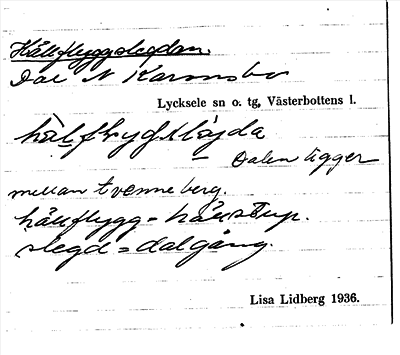 Hällflyggslegdan.
Dal N Karmsbo
Lycksele sn o. tg, Västerbottens l.
dalen ligger
mellan tvenne berg.
hällflygg = hällstup.
slegd = dalgång.
Lisa Lidberg 1936.